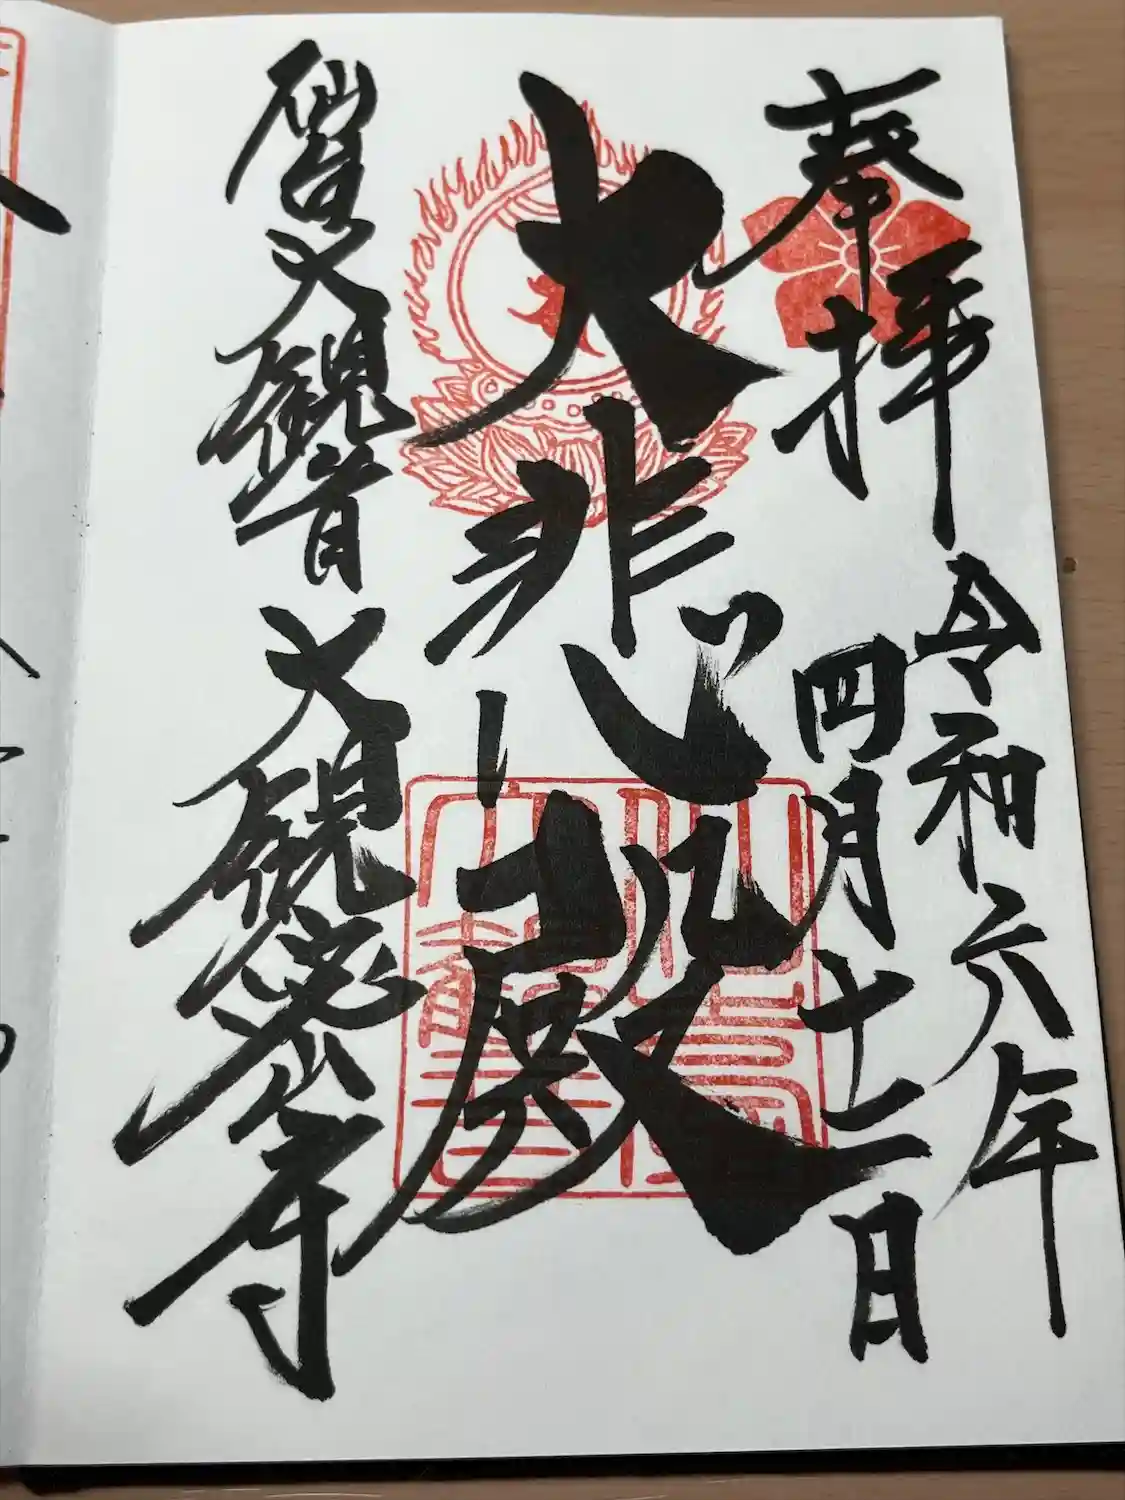 奉拝
令和六年
四月十二日
大悲殿
仙台大観音
大観密寺